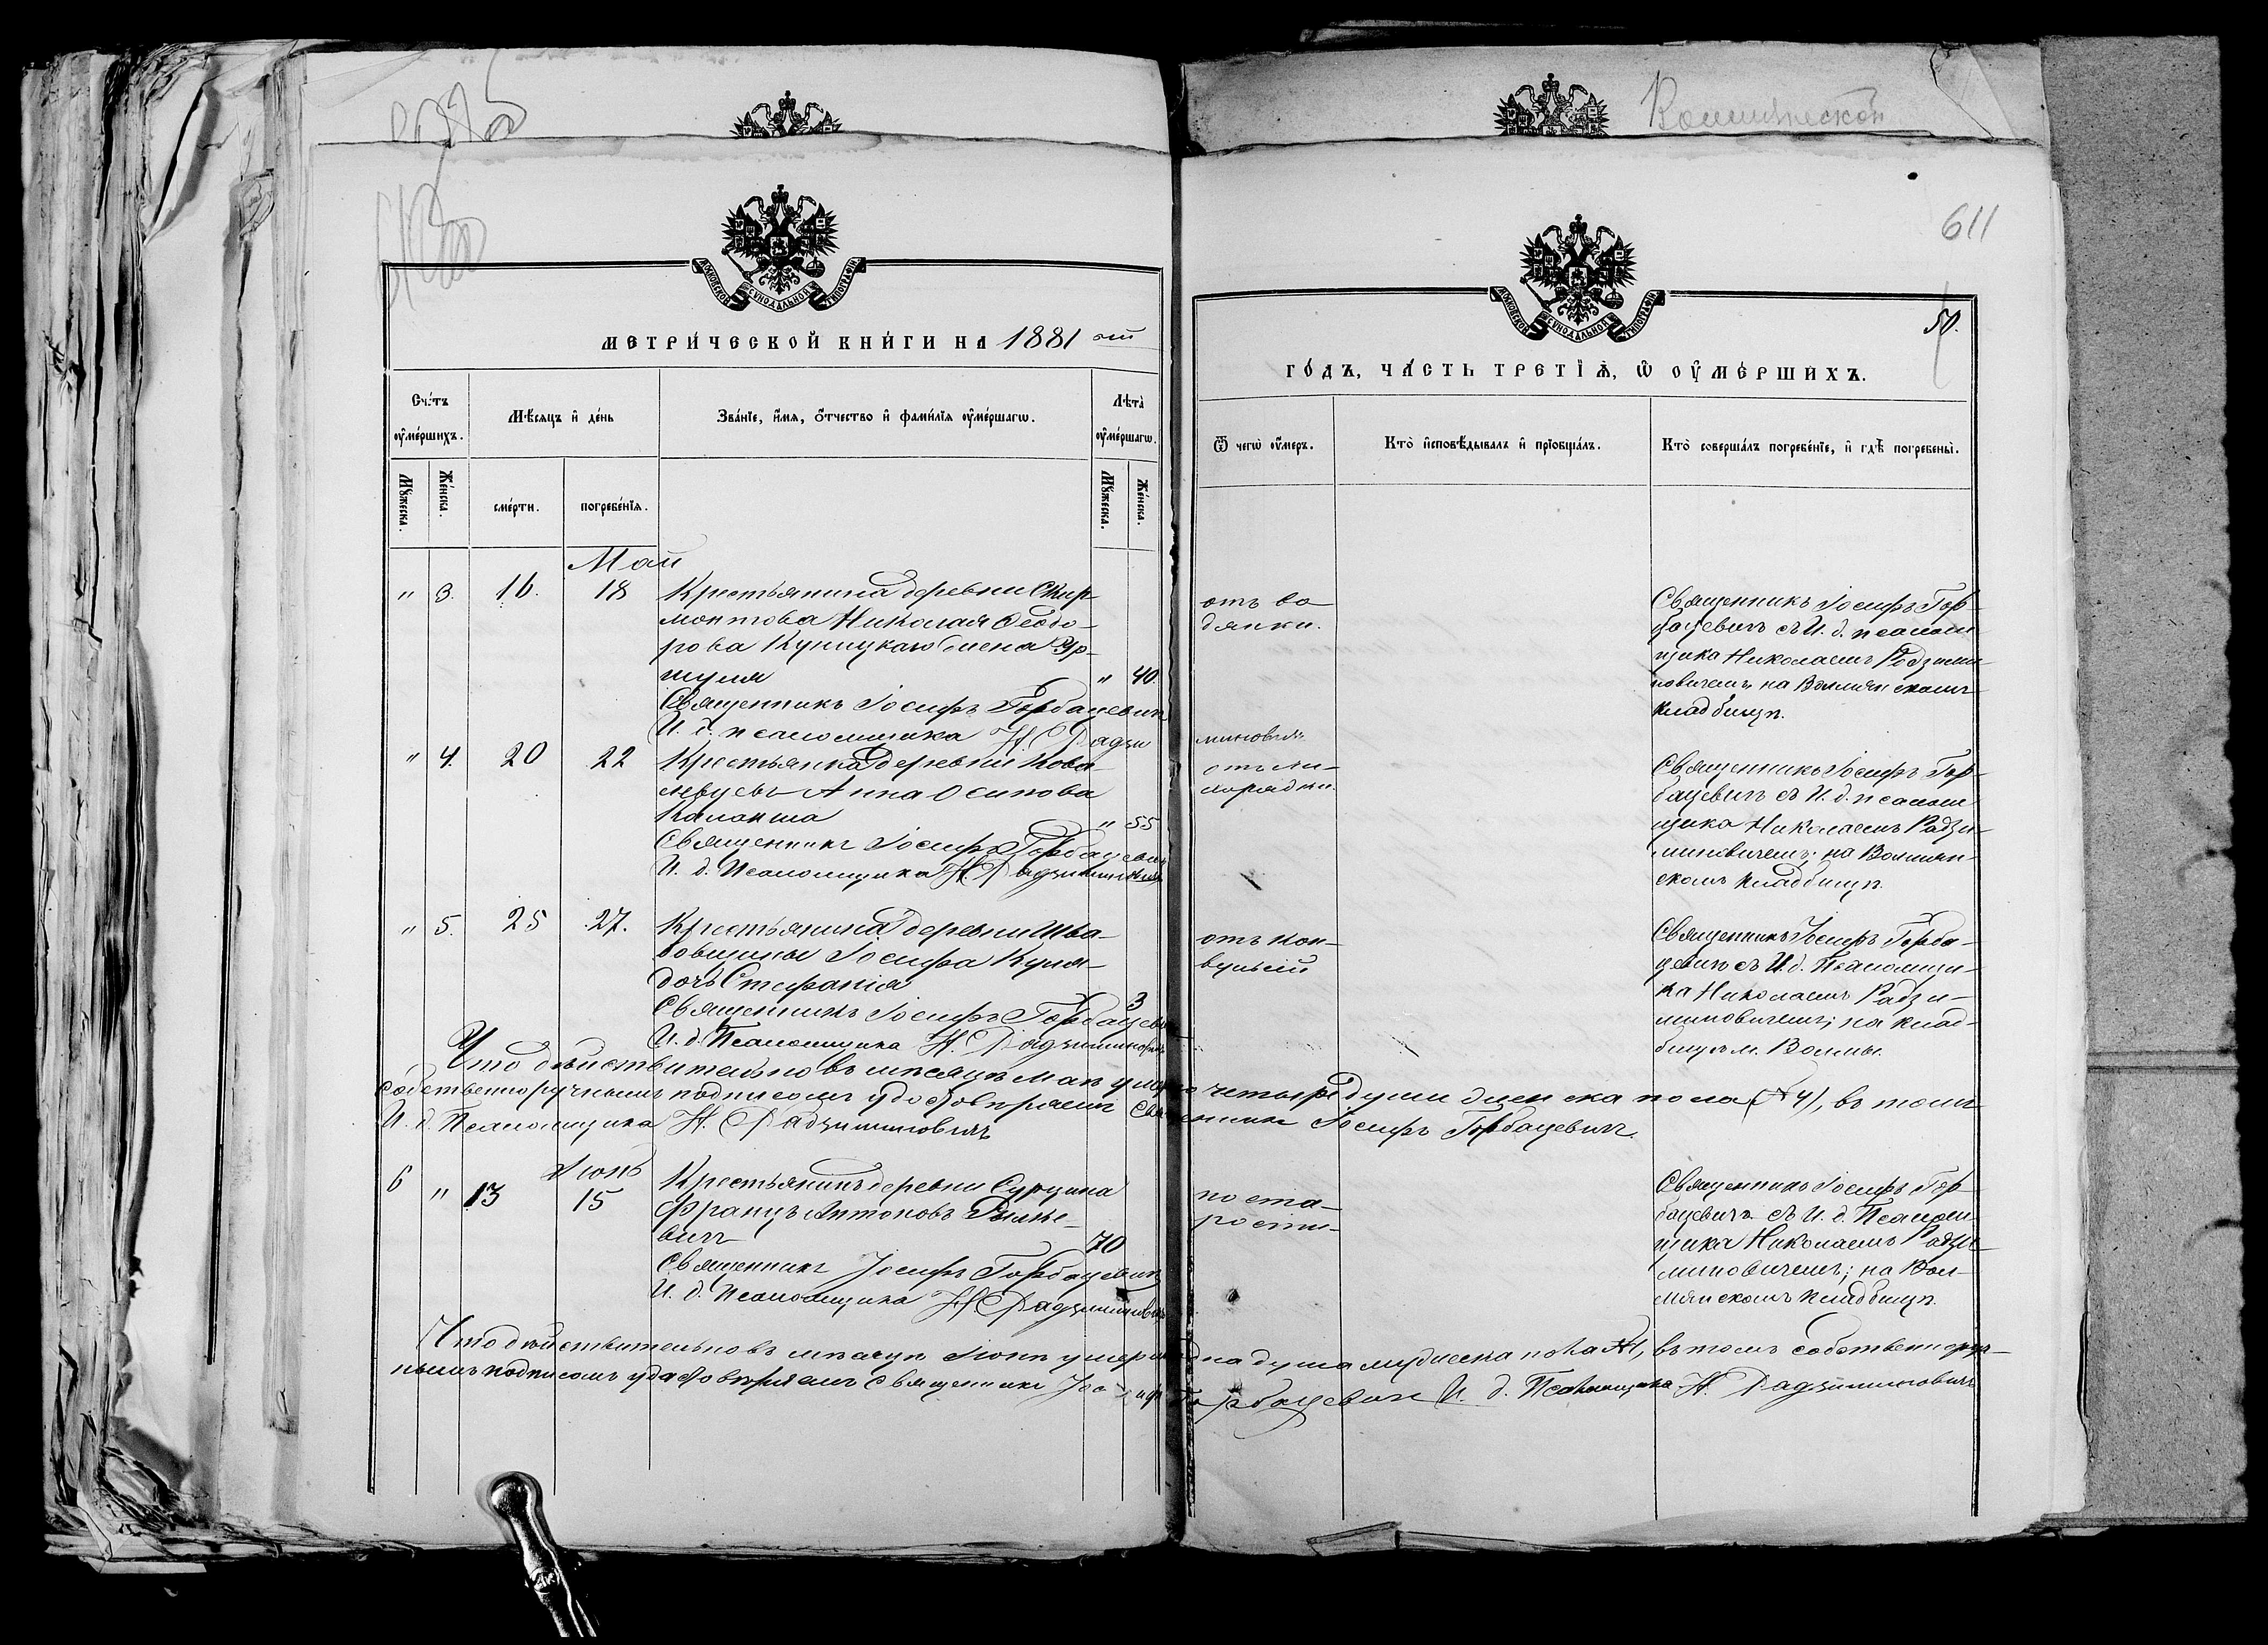 Волмянской
611
50.
МОСКОВСКОЙ СѴНОДАЛЬНОЙ ТИПОГРАФІИ
МЕТРИ́ЧЕСКОЙ КНИ́ГИ НА 1881 ый
МОСКОВСКОЙ СѴНОДАЛЬНОЙ ТИПОГРАФІИ
ГО́ДЪ, ЧА́СТЬ ТРЕТІѦ, Ѿ ОУ҆МЕ́РШИХЪ.
Сче́тъ оу҆ме́ршихъ.
Мѣсяцъ и҆ де́нь
Зва́нїе, и҆́мя, о҆́тчество и҆ фами́лїя оу҆ме́ршагѡ.
Лѣта̀ оу҆ме́ршагѡ.
Мꙋ́жеска.
Же́нска.
сме́рти.
погребе́нїя.
Мꙋ́жеска.
Же́нска.
Ѿ чегѡ̀ оу҆́меръ.
Кто̀ и҆сповѣ́дывалъ и҆ прїобща́лъ.
Кто̀ соверша́лъ погребе́нїе, и҆ гдѣ̀ погребены̀.
Май
" 3. 16. 18 Крестьянина деревни Скир-
монтова Николая Ѳеодо-
рова Куницкаго жена Ур-
шуля " 40.
Священникъ Іосифъ Горбацевичъ
И. д. псаломщика Н. Радзи
миновичъ
отъ во-
дянки.
Священникъ Іосифъ Гор-
бацевичъ съ И. д. псалом
щика Николаемъ Радзими-
новичемъ на Волмянскомъ
кладбищѣ.
" 4. 20 22 Крестьянка деревни Кова-
левцевъ Анна Осипова
" 55
Священникъ Іосифъ Горбацевичъ
И. д. Псаломщика Н. Радзиминовичъ
отъ ли-
хорадки.
Священникъ Іосифъ Гор-
бацевичъ съ И. д. псалом
щика Николаемъ Радзи-
миновичемъ; на Волмян-
скомъ кладбищѣ.
" 5. 25 27. Крестьянина деревни
Іосифа Куля-
дочь Стефанія
3
Священникъ Іосифъ Горбацевичъ
И. д. Псаломщика Н. Радзиминовичъ
отъ кон-
вульсій
Священникъ Іосифъ Горба-
цевичъ съ И. д. Псаломщи-
ка Николаемъ Радзи-
миновичемъ; на клад-
бищѣ м. Волмы.
Что дѣйствительно въ мѣсяцѣ маѣ умерло четыре души женска пола (№4), въ томъ
собственноручнымъ подписомъ удостовѣряемъ Священникъ Іосифъ Горбацевичъ.
И. д. Псаломщика Н. Радзиминовичъ
Іюнь
6 " 13 15 Крестьянинъ деревни
Францъ Антоновъ
вичъ 70
Священникъ Іосифъ Горбацевичъ
И. д. Псаломщика Н Радзиминовичъ
по ста-
рости-
Священникъ Іосифъ Гор-
бацевичъ съ И. д. Псалом-
щика Николаемъ Радзи-
миновичемъ; на Вол-
мянскомъ кладбищѣ.
Что дѣйствительно въ мѣсяцѣ Іюнѣ умерла одна душа мужеска пола №1, въ томъ собственноруч-
нымъ подписомъ удостовѣряемъ Священникъ Іосифъ Горбацевичъ И. д. Псаломщика Н. Радзиминовичъ